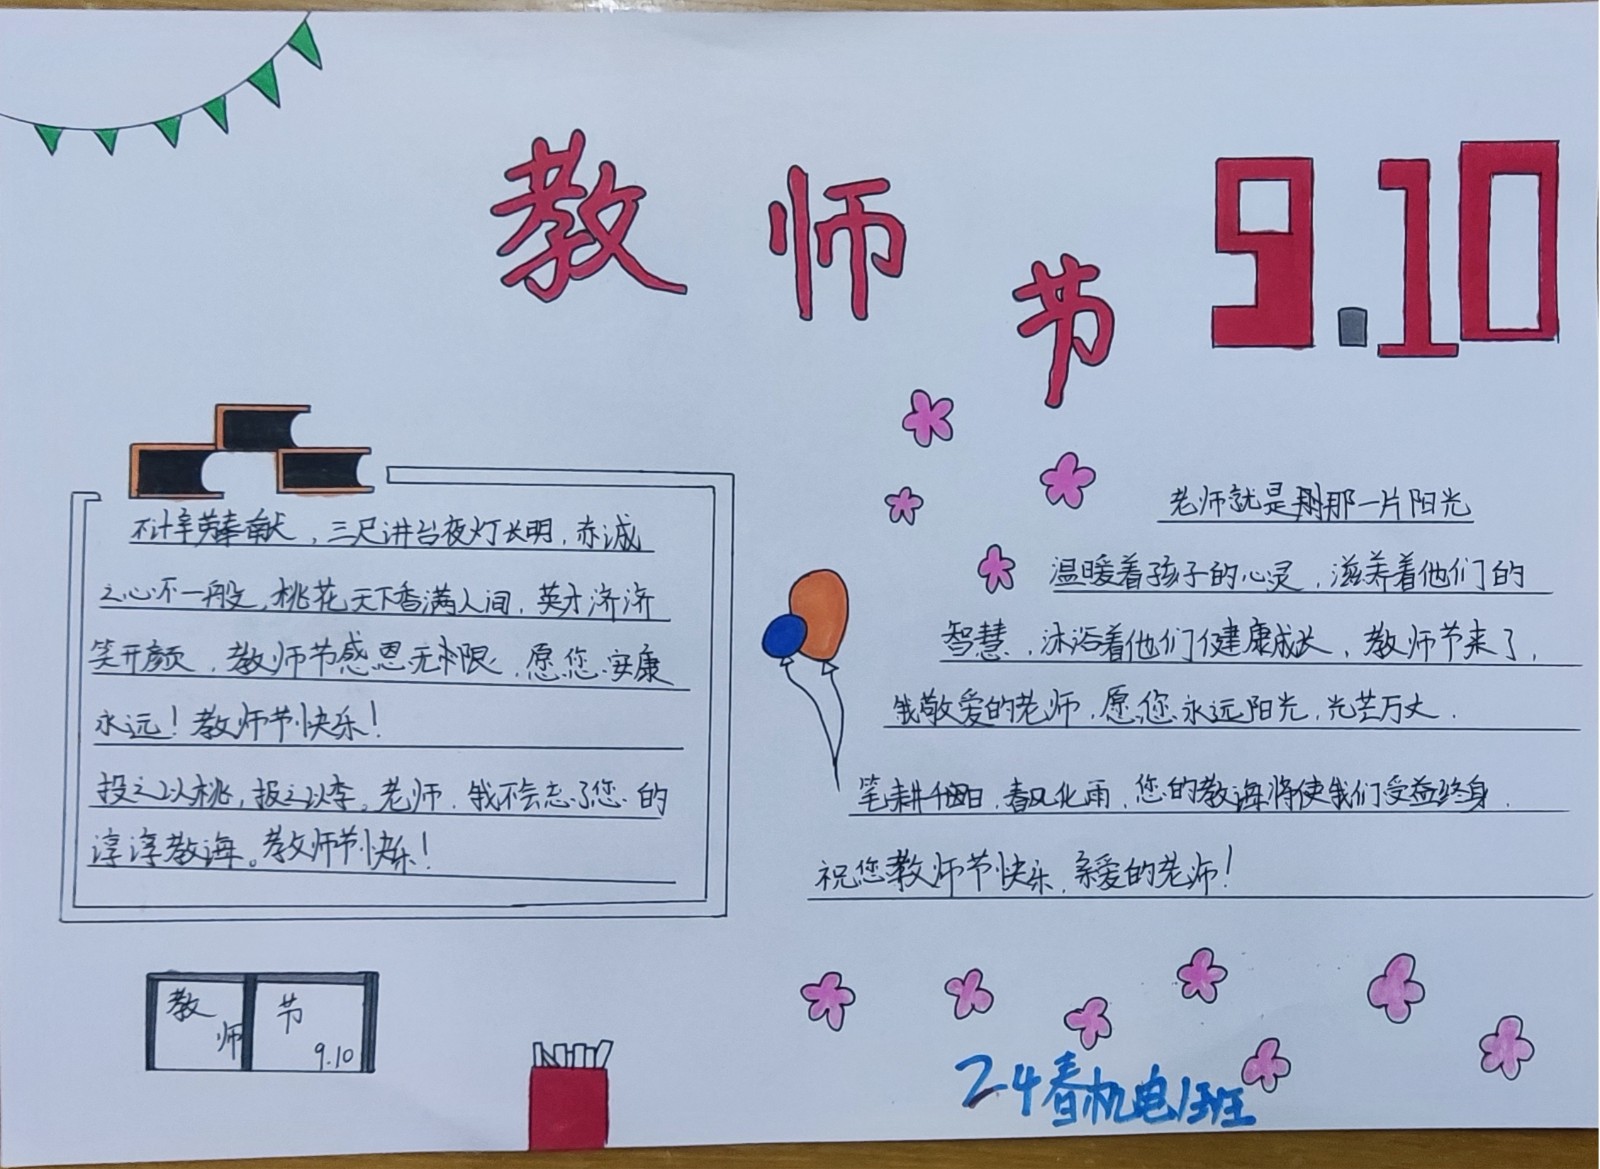 教师节 9.10
不计辛劳奉献，三尺讲台夜灯长明，赤诚
之心不一般，桃花天下香满人间，英才济济
笑开颜，教师节感恩无限，愿您安康
永远！教师节快乐！
投之以桃，报之以李。老师，我不会忘了您的
淳淳教海。教师节快乐！
老师就是那一片阳光
温暖着孩子的心灵，滋养着他们的
智慧，沐浴着他们健康成长，教师节来了，
我敬爱的老师，愿您永远阳光，光芒万丈．
笔耕，春风化雨，您的教海将使我们受益终身．
祝您教师节快乐，亲爱的老师！
教师节
9.10
24春机电1班